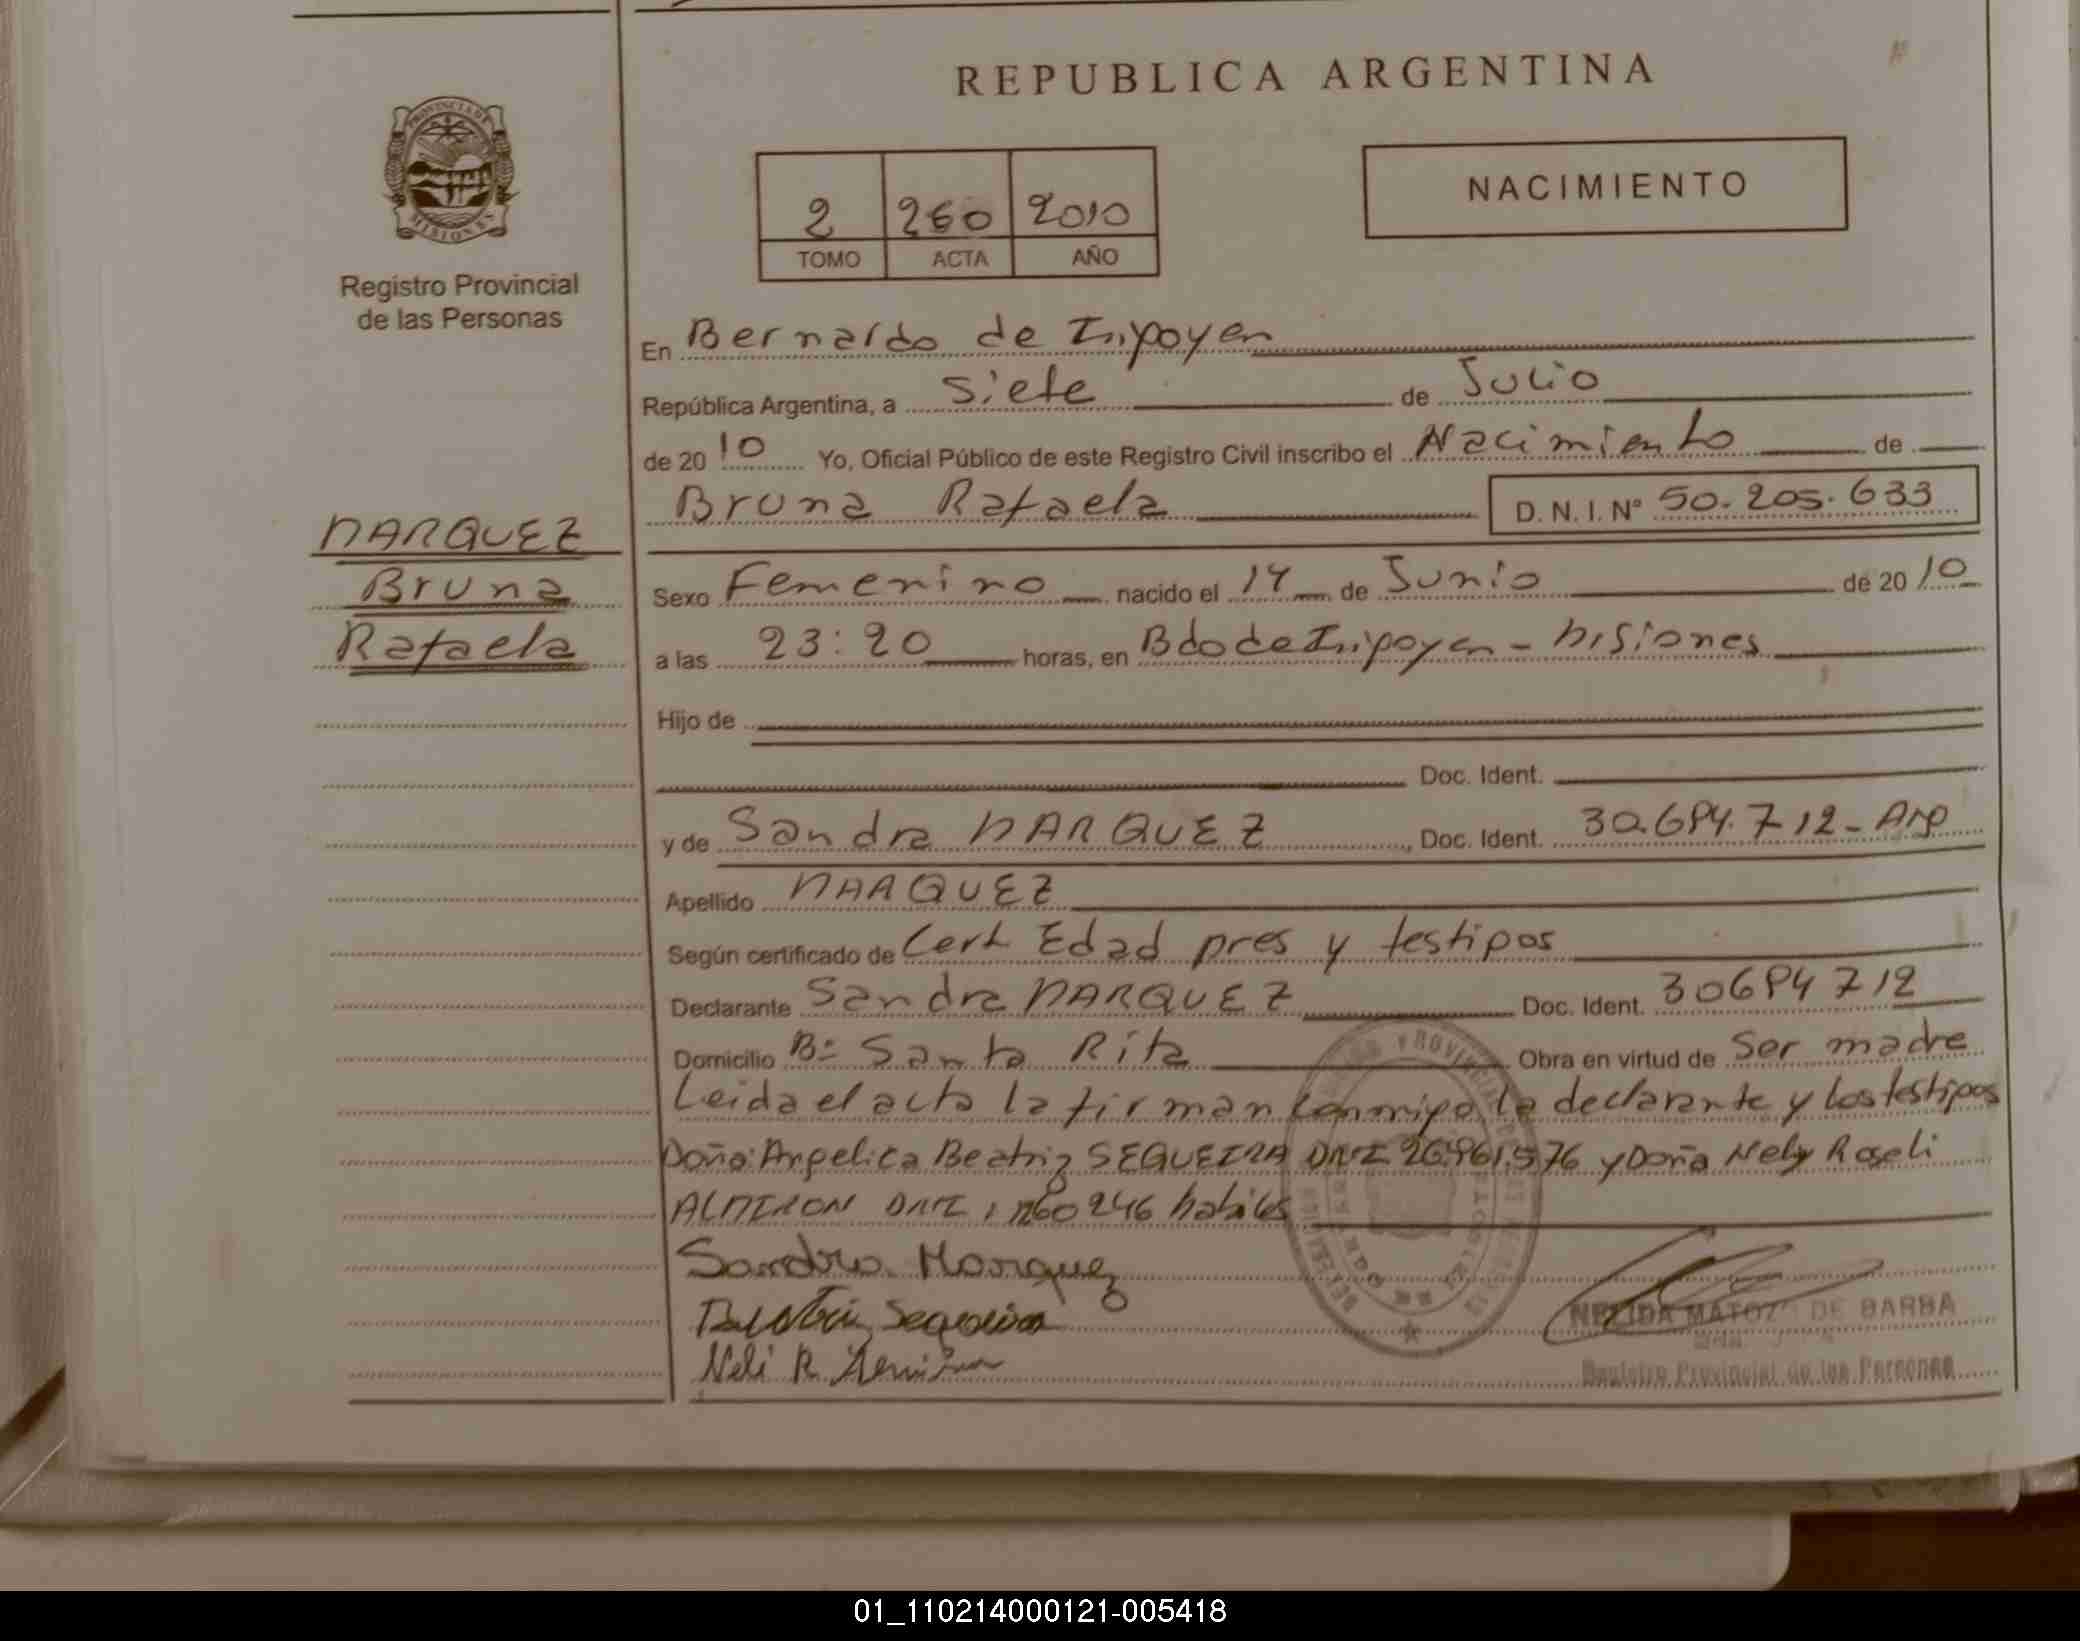 REPUBLICA ARGENTINA
PROVINCIA DE MISIONES
Registro Provincial
de las Personas
2 260 2010
TOMO ACTA AÑO
NACIMIENTO
En Bernardo de Irigoyen
República Argentina, a Siete de Julio
de 2010 Yo, Oficial Público de este Registro Civil inscribo el Nacimiento de
Bruna Rafaela D. N. I. N° 50.205.633
MARQUEZ
Bruna
Rafaela
Sexo Femenino nacido el 14 de Junio de 2010
a las 23:20 horas, en Bdo de Irigoyen - Misiones
Hijo de
Doc. Ident.
y de Sandra MARQUEZ, Doc. Ident. 30.684.712 - Arg
Apellido MARQUEZ
Según certificado de Cert Edad pres y testigos
Declarante Sandra MARQUEZ Doc. Ident. 30684712
Domicilio B° Santa Rita Obra en virtud de Ser madre
Leida el acta la firman conmigo la declarante y los testigos
Doña: Angelica Beatriz SEQUEIRA DNI 26.961.576 y Doña Nely Roseli
ALMIRON DNI habiles
Sandra Marquez
Beatriz Sequeira
Neli R.
NELIDA MATOZO DE BARBA
Registro Provincial de las Personas
01_110214000121-005418